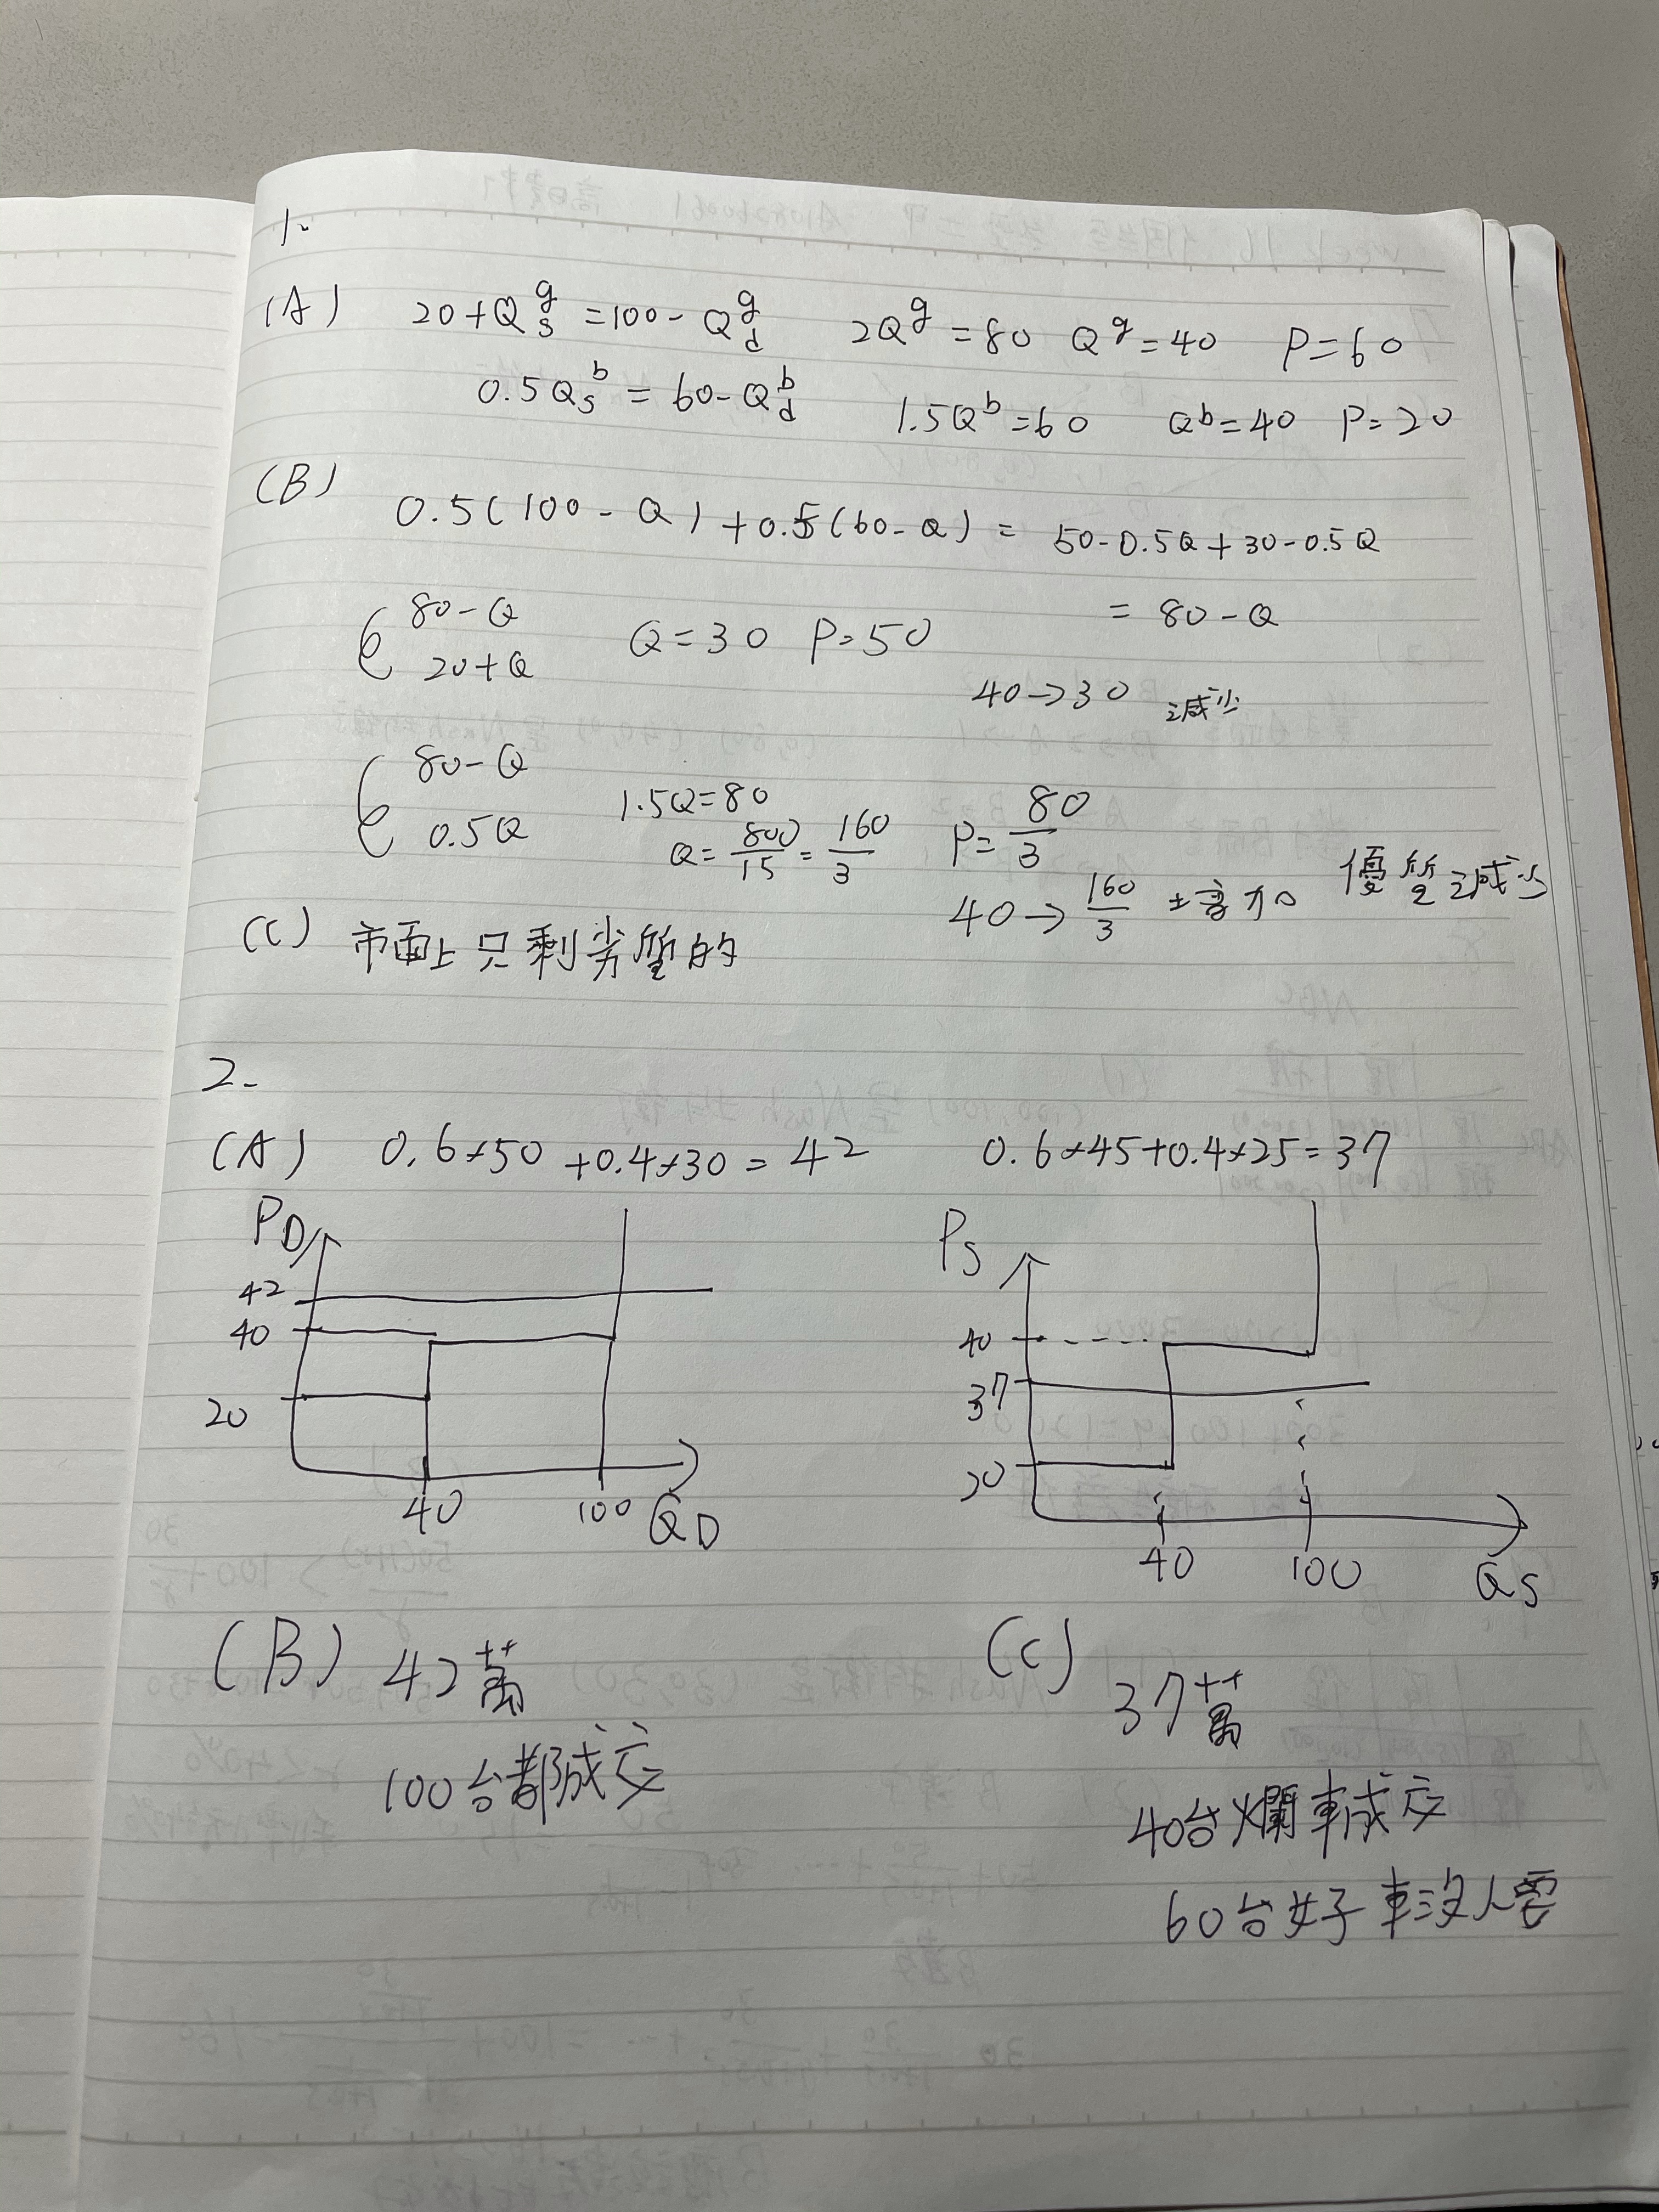 1.
(A) 20+Q_s^g=100-Q_d^g 2Q^g=80 Q^g=40 P=60
0.5Q_s^b=60-Q_d^b 1.5Q^b=60 Q^b=40 P=20
(B) 0.5(100-Q)+0.5(60-Q)= 50-0.5Q+30-0.5Q
= 80-Q
80-Q
20+Q Q=30 P=50
40→30 減少
80-Q
0.5Q 1.5Q=80
Q=800/15=160/3 P=80/3
40→160/3 增加 優質減少
(C) 市面上只剩劣質的
2-
(A) 0.6×50+0.4×30=42 0.6×45+0.4×25=37
P_D
42
40
20
40 100 Q_D
P_S
40
37
20
40 100 Q_S
(B) 42萬
100台都成交
(C) 37萬
40台爛車成交
60台好車沒人要